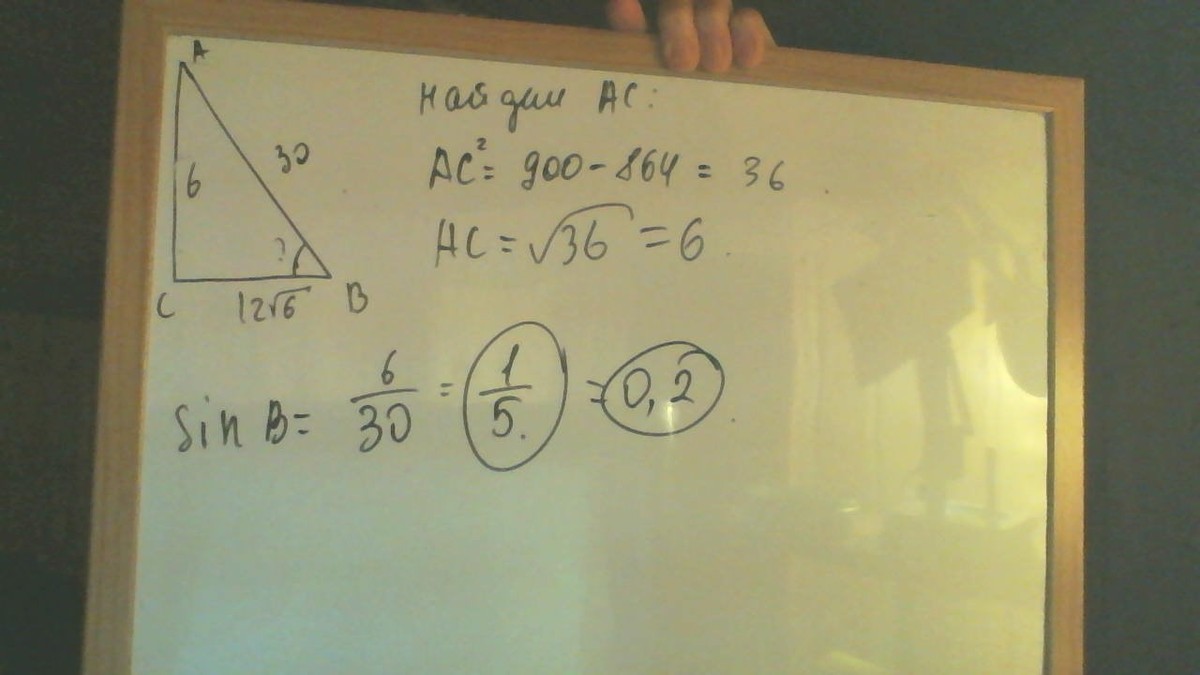 A
6
30
?
C
12√6
B
Найдем AC:
AC² = 900 - 864 = 36
AC = √36 = 6.
sin B = 6/30 = 1/5 = 0,2